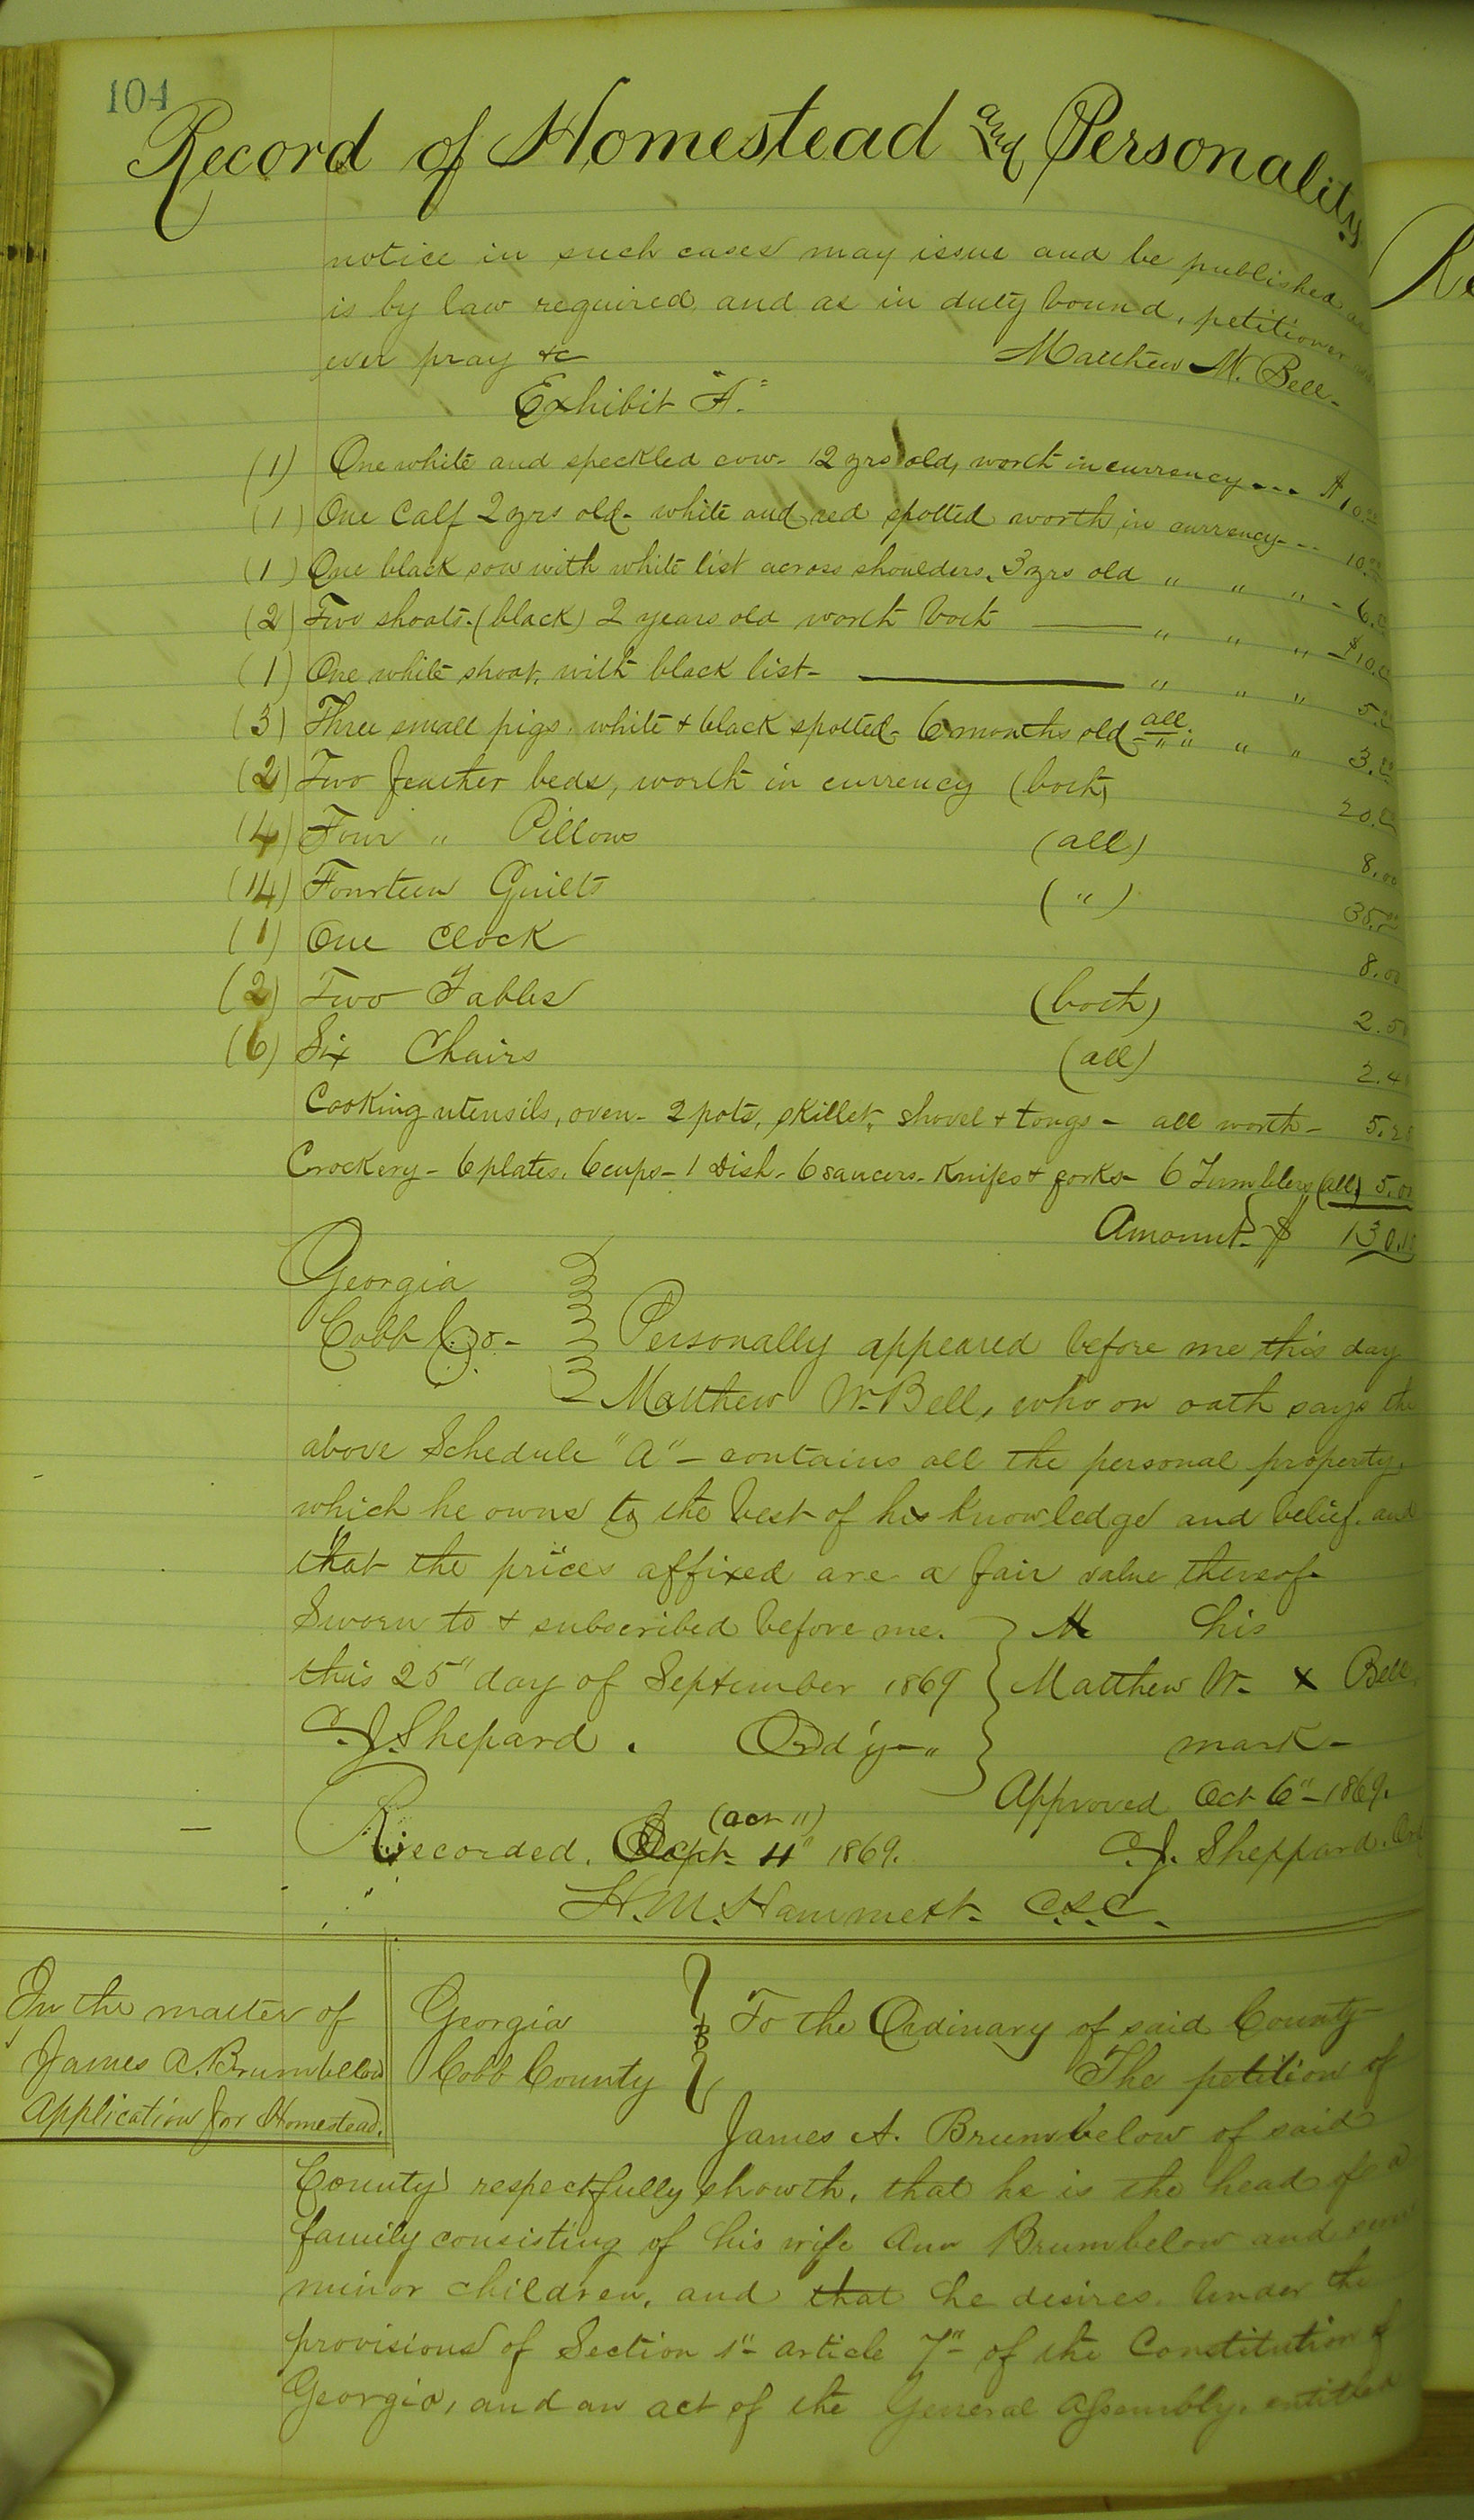 104
Record of Homestead and Personality
notice in such cases may issue and be published as
is by law required, and as in duty bound, petitioner
ever pray &c Matthew W. Bell.
Exhibit "A."
(1) One white and speckled cow - 12 yrs old, worth in currency --- $10.00
(1) One Calf 2 yrs old - white and red spotted worth in currency --- 10.00
(1) One black sow with white list across shoulders, 3 yrs old " " " - 6.00
(2) Two shoats. (black) 2 years old worth both — " " " - $10.00
(1) One white shoat, with black list - — " " " 5.00
(3) Three small pigs, white & black spotted - 6 months old - all " " " 3.00
(2) Two feather beds, worth in currency (both) 20.00
(4) Four " Pillows (all) 8.00
(14) Fourteen Quilts ( " ) 35.00
(1) One Clock 8.00
(2) Two Tables (both) 2.50
(6) Six Chairs (all) 2.40
Cooking utensils, oven - 2 pots, skillet, shovel & tongs - all worth -
Crockery - 6 plates, 6 cups - 1 Dish - 6 saucers - Knifes & forks - 6 Tumblers (all) 5.00
Amount - $
Georgia
Cobb Co. - Personally appeared before me this day
Matthew W. Bell, who on oath says the
above Schedule "A" - contains all the personal property,
which he owns to the best of his knowledge and belief, and
that the prices affixed are a fair value thereof -
Sworn to & subscribed before me. his
this 25" day of September 1869 Matthew W. X Bell.
C. J. Shepard. Ord'y - " mark -
Approved Oct 6" - 1869.
(Oct 11)
Recorded. Sept. 11" 1869. C. J. Sheppard. Ord
H. M. Hammett - C.S.C.
In the matter of
James A. Brumbelow
Application for Homestead.
Georgia
Cobb County
To the Ordinary of said County -
The petition of
James A. Brumbelow of said
County respectfully showth, that he is the head of a
family consisting of his wife Ann Brumbelow and
minor children, and that he desires, under the
provisions of Section 1" - article 7" - of the Constitution of
Georgia, and an act of the General Assembly, entitled